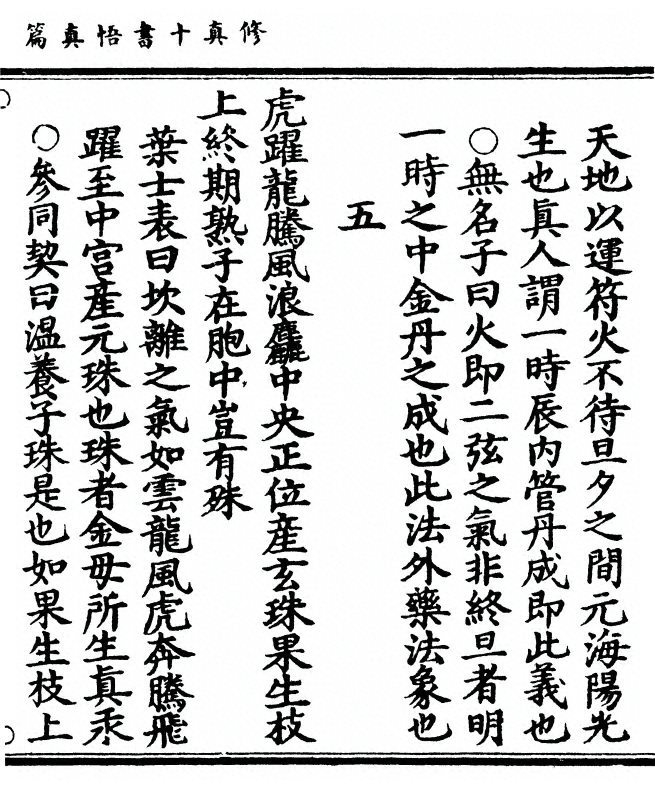 修真十書悟真篇
天地以運符火不待旦夕之間元海陽光
生也眞人謂一時辰内管丹成即此義也
○無名子曰火即二弦之氣非終旦者明
一時之中金丹之成也此法外藥法象也
五
虎躍龍騰風浪麤中央正位産玄珠果生枝
上終期熟子在胞中豈有殊
葉士表曰坎離之氣如雲龍風虎奔騰飛
躍至中宮産元珠也珠者金母所生眞汞
○參同契曰温養子珠是也如果生枝上